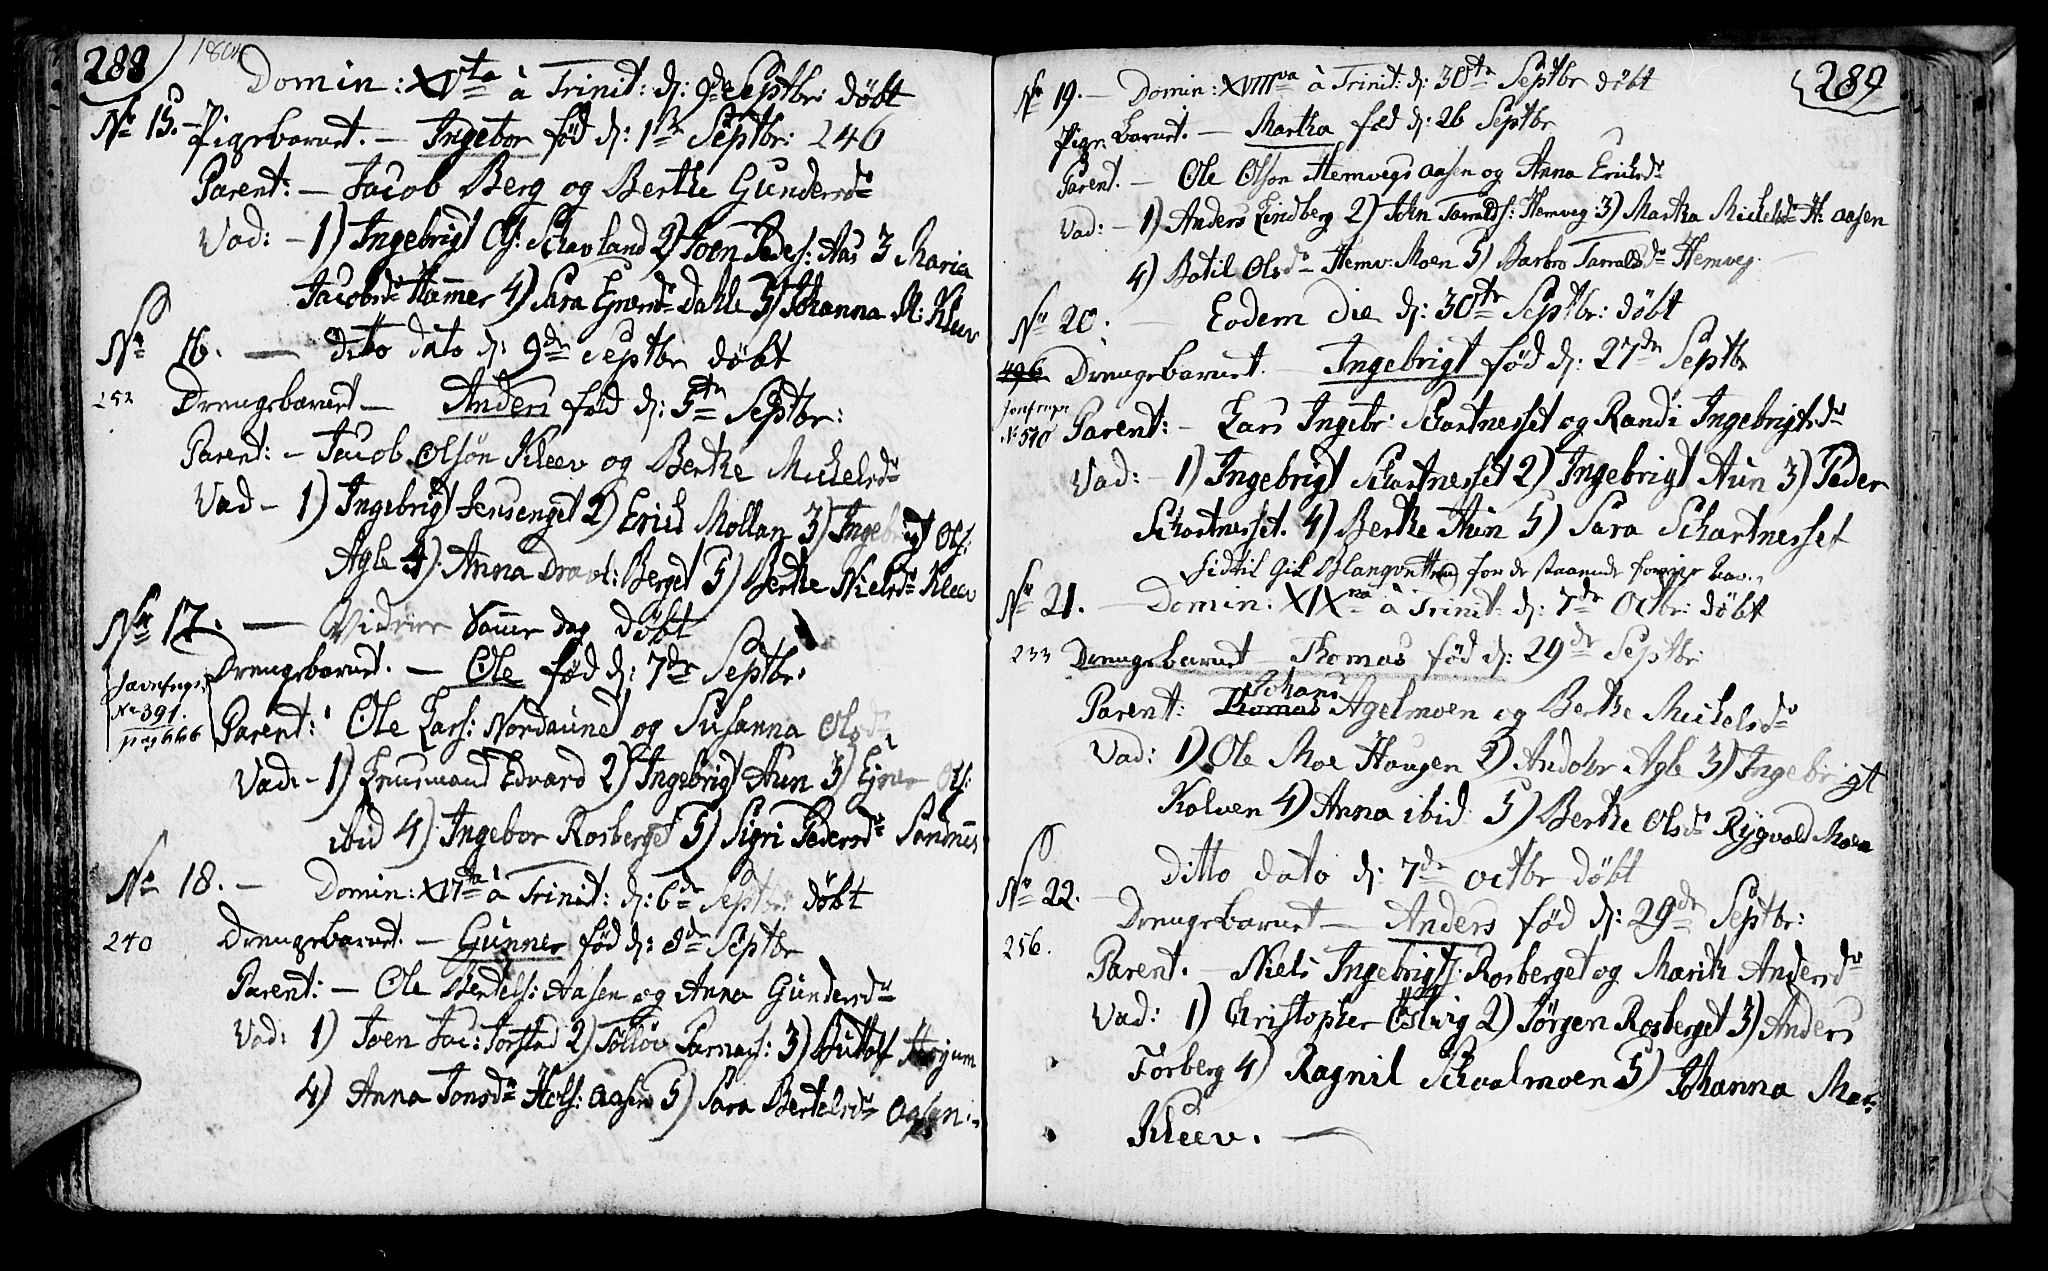 288 1804
Domin: XVta à Trinit: d: 9de Septbr: døbt
No 15. - Pigebarnet. - Ingebor fød d: 1ste Septbr: 246
Parent: - Jacob Berg og Berthe Gundersdr
Vad: - 1) Ingebrigt Ols: Schavland 2) Joen Peders: Aas 3 Maria
Jacobsdr Hammer 4) Sara Ejversdr Dahle 5) Johanna M: Kleev
No 16. - dito dato d: 9de Septbr døbt
252 Drengebarnet - Anders fød d: 5te Septbr:
Parent: - Jacob Olsøn Kleev og Berthe Michelsdr
Vad - 1) Ingebrigt Seusenget 2) Erich Mollan 3) Ingebrigt Ols:
Agle 4) Anna Berget 5) Berthe Nielsdr Kleev
No 17. - Vidrere Samme dag døbt
Drengebarnet. - Ole fød d: 7de Septbr:
No 391.
Parent: Ole Lars: Nordaune og Susanna Olsd
Vad. - 1) Lensmand Edvard 2) Ingebrigt Aun 3) Ejner Ols:
ibid 4) Ingebor Rosberget 5) Sigri Pedersdr Sandnes
No 18. - Domin: XVIta à Trinit: d: 6de Septbr: døbt
240 Drengebarnet. - Gunner fød d: 8de Septbr
Parent: - Ole Bertels: Aasen og Anna Gundersdr
Vad: 1) Joen Jac: Jørstad 2) Tolløv 3) Buttolf
4) Anna Jonsdr Hols: aasen 5) Sara Bertelsdr Aasen.
289
No 19. - Domin: XVIIIva à Trinit: d: 30te Septbr døbt
Pigebarnet. - Martha fød d: 26 Septbr
Parent. - Ole Olson Hemvegs aasen og Anna Ericksdr
Vad: - 1) Anders Lindberg 2) John Tarralds: Hemveg 3) Martha Michelsdr H: aasen
4) Botil Olsdr Hemv: Moen 5) Barbro Tarraldsdr Hemveg.
No 20. - Eodem Die d: 30te Septbr: døbt
496 Drengebarnet. - Ingebrigt fød d: 27de Septbr
No 540 Parent: - Lars Ingebr: Schartnesset og Randi Ingebrigtsdr
Vad: - 1) Ingebrigt Schartnesset 2) Ingebrigt Aun 3) Peder
Schartnesset. 4) Berthe Aun 5) Sara Schartnesset
for de staaende forrige
No 21. - Domin: XIXna à Trinit: d: 7de Octbr: døbt
233 Drengebarnet Thomas fød d: 29de Septbr:
Johans
Parent: Thomas Agelmoen og Berthe Michelsdr
Vad: 1) Ole Moe Haugen 2) Andobr Agle 3) Ingebrigt
Kolven 4) Anna ibid: 5) Berthe Olsdr Rygvold Moen
No 22. - Ditto dato d: 7de octbr døbt
Drengebarnet - Anders fød d: 29de Septbr:
256. Parent. - Niels Ingebrigts: Rosberget og Marith Andersdr
Vad: 1) Christopher Østvig 2) Jørgen Rosberget 3) Anders
Forberg 4) Ragnil Schaalmoen 5) Johanna Mar:
Kleev. -